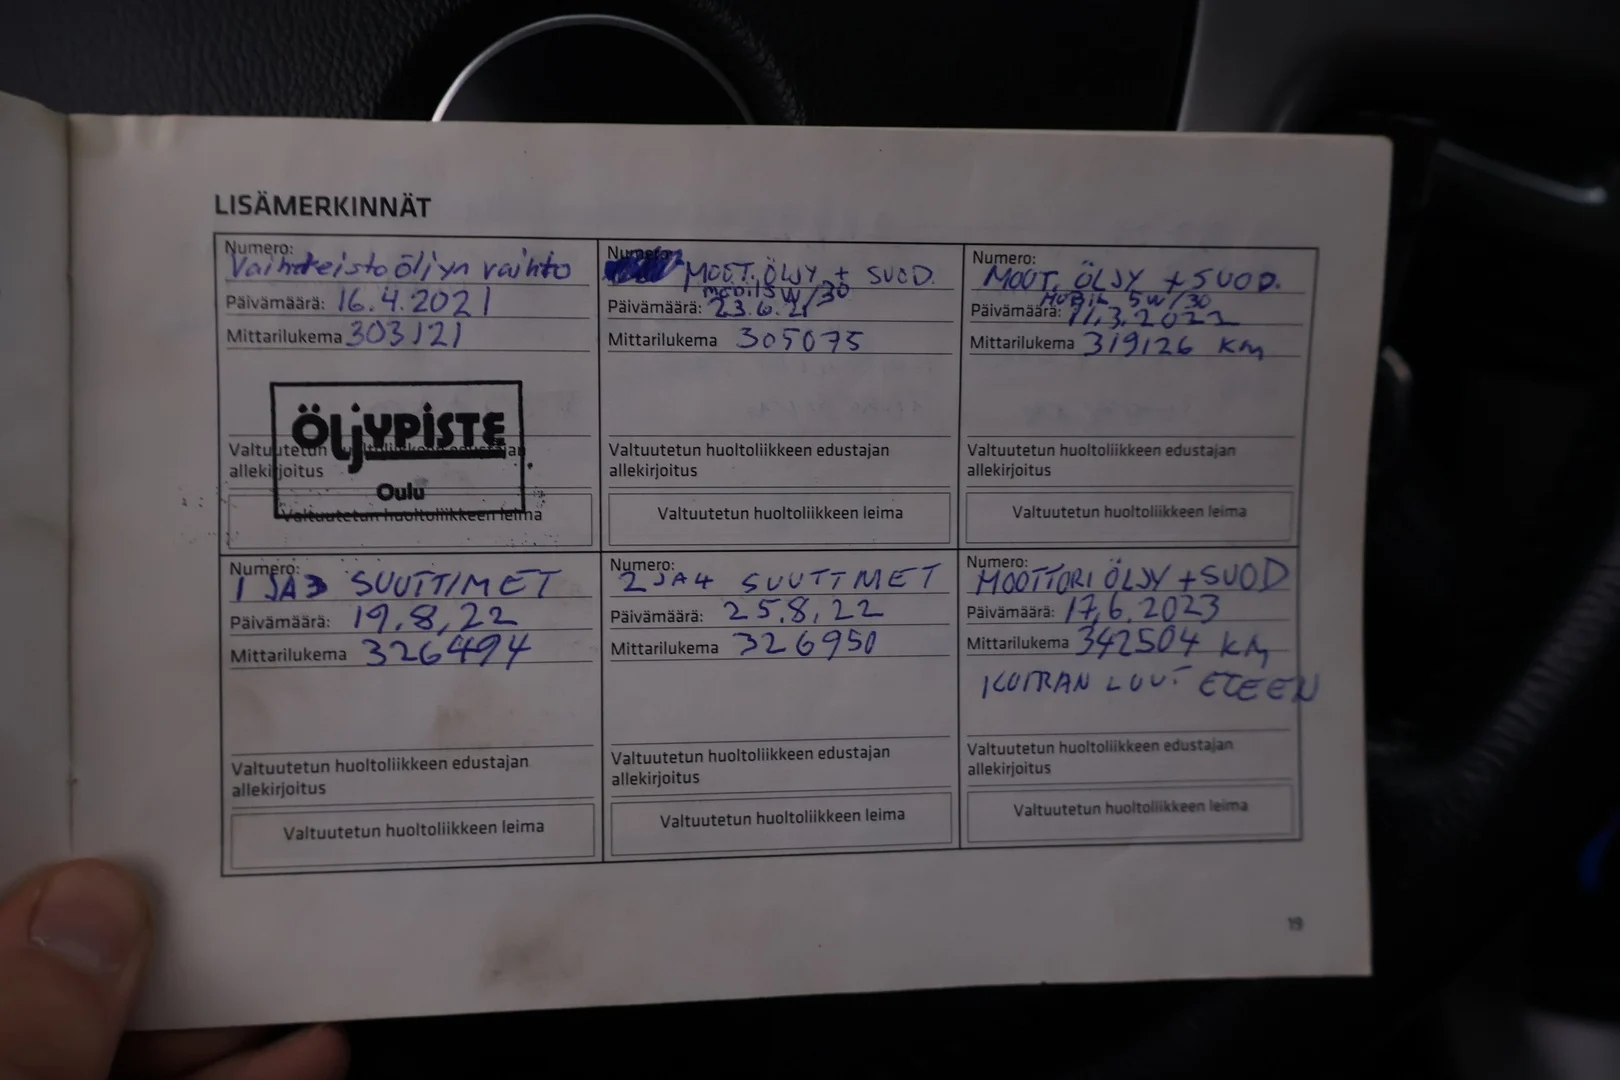 LISÄMERKINNÄT
Numero:
Vaihteisto öljyn vaihto
Päivämäärä: 16.4.2021
Mittarilukema 303121
ÖLJYPISTE
Oulu
Valtuutetun huoltoliikkeen edustajan
allekirjoitus
Valtuutetun huoltoliikkeen leima
Numero:
MOOT. ÖLJY + SUOD.
mobil 5W/30
Päivämäärä: 23.6.21
Mittarilukema 305075
Valtuutetun huoltoliikkeen edustajan
allekirjoitus
Valtuutetun huoltoliikkeen leima
Numero:
MOOT. ÖLJY + SUOD.
MOBIL 5W/30
Päivämäärä: 11.3.2022
Mittarilukema 319126 KM
Valtuutetun huoltoliikkeen edustajan
allekirjoitus
Valtuutetun huoltoliikkeen leima
Numero:
1 JA 3 SUUTTIMET
Päivämäärä: 19.8,22
Mittarilukema 326494
Valtuutetun huoltoliikkeen edustajan
allekirjoitus
Valtuutetun huoltoliikkeen leima
Numero:
2 JA 4 SUUTTMET
Päivämäärä: 25.8,22
Mittarilukema 326950
Valtuutetun huoltoliikkeen edustajan
allekirjoitus
Valtuutetun huoltoliikkeen leima
Numero:
MOOTTORI ÖLJY + SUOD
Päivämäärä: 17,6.2023
Mittarilukema 342504 KM
ETEEN
Valtuutetun huoltoliikkeen edustajan
allekirjoitus
Valtuutetun huoltoliikkeen leima
19